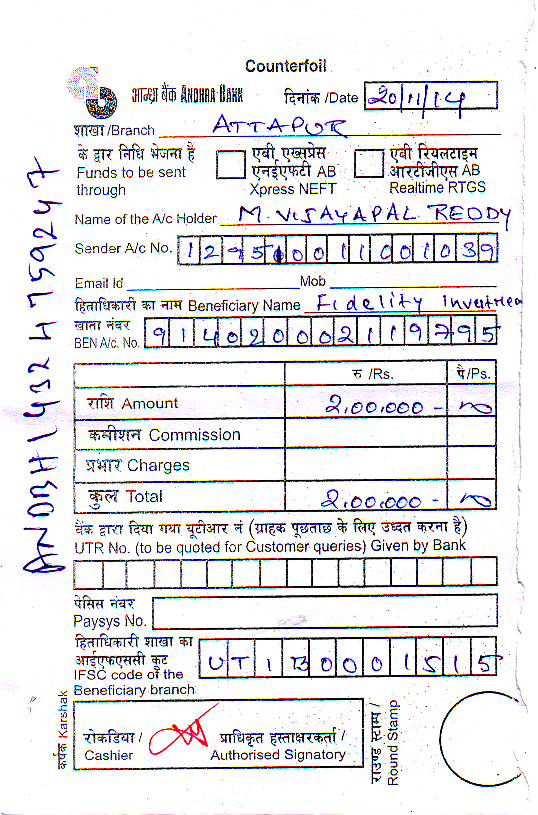 Counterfoil
आन्ध्रा बैंक ANDHRA BANK
दिनांक /Date 20/11/14
शाखा /Branch ATTAPUR
के द्वार निधि भेजना है
Funds to be sent
through
एबी एक्सप्रेस
एनईएफटी AB
Xpress NEFT
एबी रियलटाइम
आरटीजीएस AB
Realtime RTGS
Name of the A/c Holder M. VIJAYAPAL REDDY
Sender A/c No. 129510011001039
Email Id Mob
हिताधिकारी का नाम Beneficiary Name Fidelity
खाता नंबर
BEN A/c. No. 914020002119795
रु /Rs. पै /Ps.
राशि Amount 2,00,000 -
कमीशन Commission
प्रभार Charges
कुल Total 2,00,000 -
बैंक द्वारा दिया गया यूटीआर नं (ग्राहक पूछताछ के लिए उध्दत करना है)
UTR No. (to be quoted for Customer queries) Given by Bank
पेसिस नंबर
Paysys No.
हिताधिकारी शाखा का
आईएफएससी कूट
IFSC code of the
Beneficiary branch
UTIB0001515
रोकडिया /
Cashier
प्राधिकृत हस्ताक्षरकर्ता /
Authorised Signatory
राउण्ड स्टाम्प /
Round Stamp
कर्षक Karshak